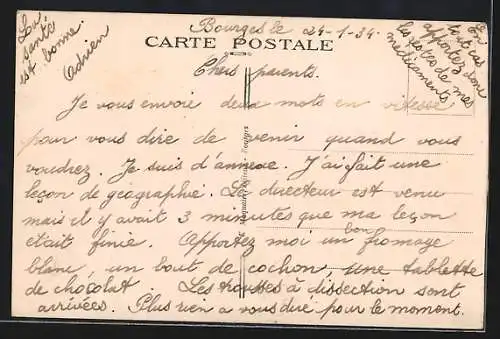 La
santé
est bonne.
Adrien
Bourges le 24-1-34.
En
tout cas
apportez donc
les notes de mes
médicaments.
CARTE POSTALE
Chers parents.
Je vous envoie deux mots en vitesse
pour vous dire de venir quand vous
voudrez. Je suis d'annexe. J'ai fait une
leçon de géographie. Le directeur est venu
mais il y avait 3 minutes que ma leçon
était finie. Apportez moi un bon fromage
blanc, un bout de cochon, une tablette
de chocolat. Les trousses à dissection sont
arrivées. Plus rien a vous dire pour le moment.